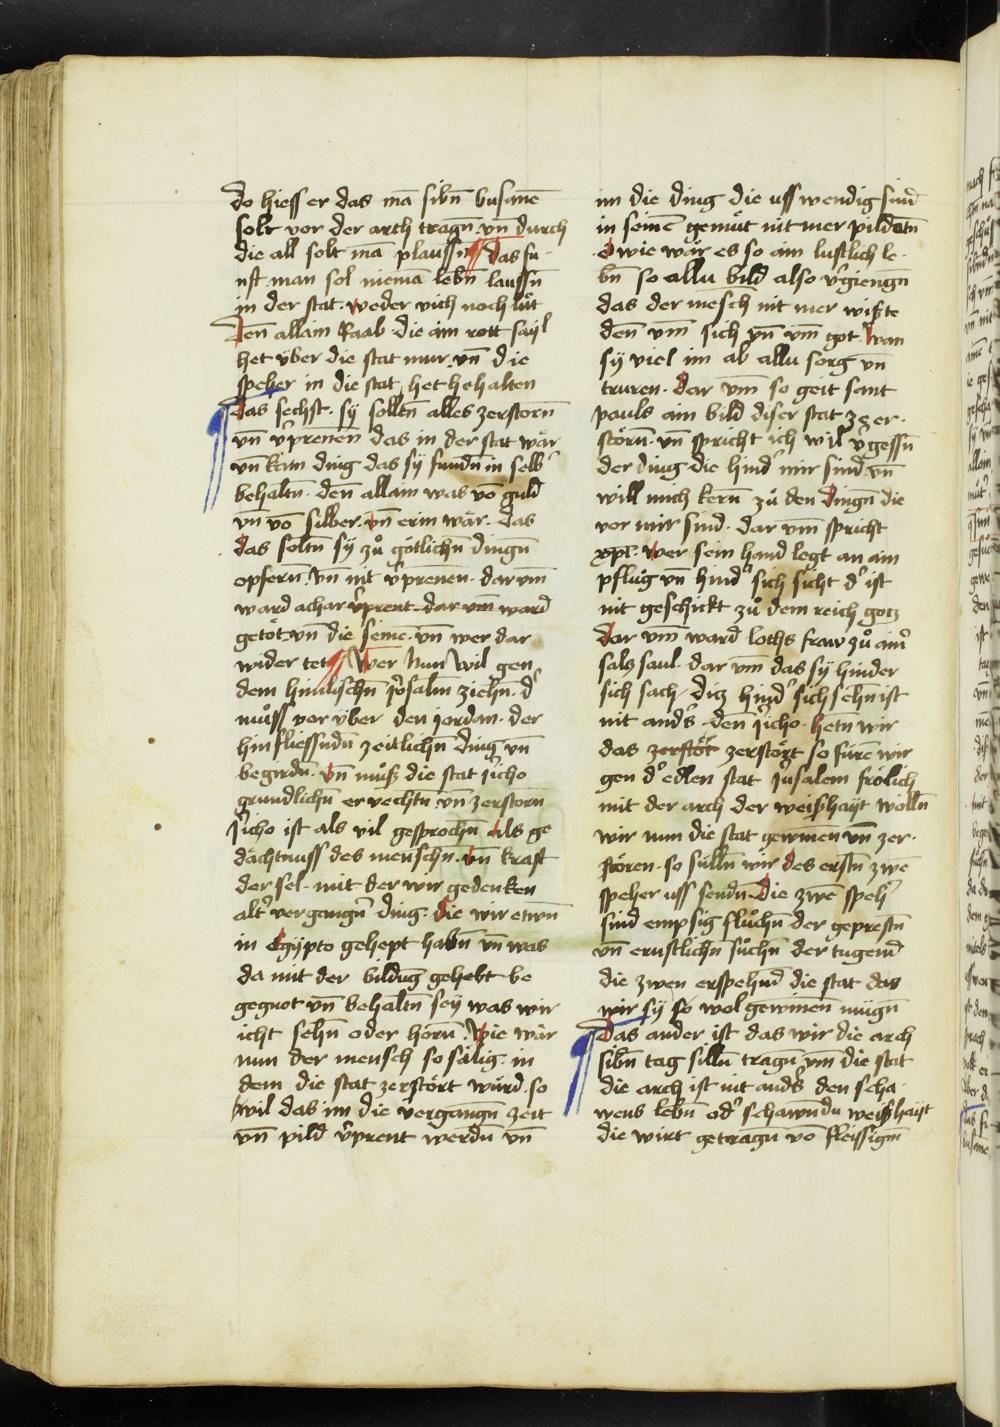 do hiess er das mā sibn̄ busanē
solt vor der arch tragn̄ vn̄ durch
die all solt mā plaussn̄ das fu¬
nft man sol niemā lebn̄ laussn̄
in der stat. weder vich noch lüt
den̄ allain Raab die ain rott sayl
het über die stat mur. vn̄ die
speher in die stat het behalten
das sechst. sÿ solltn̄ alles zerstorn̄
vn̄ v̉prenēn das in der stat wär
vn̄ kain ding das sÿ fundn̄ in selb̉
behaltn̄. den̄ allain was vō guld
vn̄ vō silber. vn̄ erin wär. das
das soltn̄ sÿ zů götlichn̄ dingn̄
opfern̄. vn̄ nit v̉prenen. darvm̄
ward achar v̉prent darvm̄ ward
getöt vn̄ die seine. vn̄ wer dar
wider tet Wer Nun Wil gen
dem himlischn̄ jr̉osalm̄ ziehn̄. d̉
můss vor über den jordan. der
hin fliessndn̄ zeitlichn̄ ding vn̄
begirdn̄. vn̄ můß die stat jr̉icho
gruntlichn̄ er vechtn̄ vn̄ zerstorn̄
Jr̉icho ist als vil gesprochn̄ als ge
dächtnuss des menschn̄. vn̄ kraft
der sel. mit der wir gedenken
alt̉ vergangn̉ ding. die wir etwn̄
in Egÿpto gehept habn̄ vn̄ was
da mit der bildūg gehebt be
gegnot vn̄ behaltn̄ seÿ was wir
icht sehn̄ oder horn̄. Wie wär
nun der mensch so sälig. in
dem die stat zerstört würd. so
wil das im die vergangn̄ zeit
vn̄ pild v̉prent werdn̄ vn̄
im die ding die uss wendig sind
in seinē gemüt nit mer pildetn̄
O wie wär es so ain lustlich le¬
bn̄ so allu bild also v̉giengn̄
das der mēsch nit mer wiste
den̄ vm̄ sich vn̄ vm̄ got. Wan
sÿ viel im ab allu sorg vn̄
truren. Dar vm̄ so geit sant
pauls ain bild diser stat ze er¬
störn̄. vn̄ spricht ich wil v̉gessn̄
der ding. die hind̉ mir sind. vn̄
will mich kern̄ zů den dingn̄ die
vor mir sind. dar vm̄ spricht
xp̄i. Wer sein hand legt an ain
pflůg vn̄ hind̉ sich sicht d̉ ist
nit geschickt zů dem reich gotz
Dar vm̄ ward loths fraw zů ain̉
saltz saul. dar vm̄ das sÿ hinder
sich sach. diz hind̉ sich sehn̄ ist
nit and̉s. den̄ jr̉icho. hetn̄ wir
das zerstöt zerstört so fürē wir
gen d̉ edlen stat jr̉usalem frölich
mit der arch der weißhaÿt wölln̄
wir nun die stat gewinen vn̄ zer¬
stören. so sülln̄ wir des erstn̄ zwē
speher uss sendn̄. Die zwē speh̉
sind empsig flůchn̄ der geprestn̄
vn̄ ernstlichn̄ sůchn̄ der tugend
die zwen erspehnd die stat das
wir sÿ so wol gewinnen mügn̄
Das ander ist das wir die arch
sibn̄ tag sülln̄ tragn̄ vm̄ die stat
die arch ist nit and̉s den scha¬
wens lebn̄ od̉ schawndu weißhaÿt
die wirt getragn̄ vō fleissigm̄